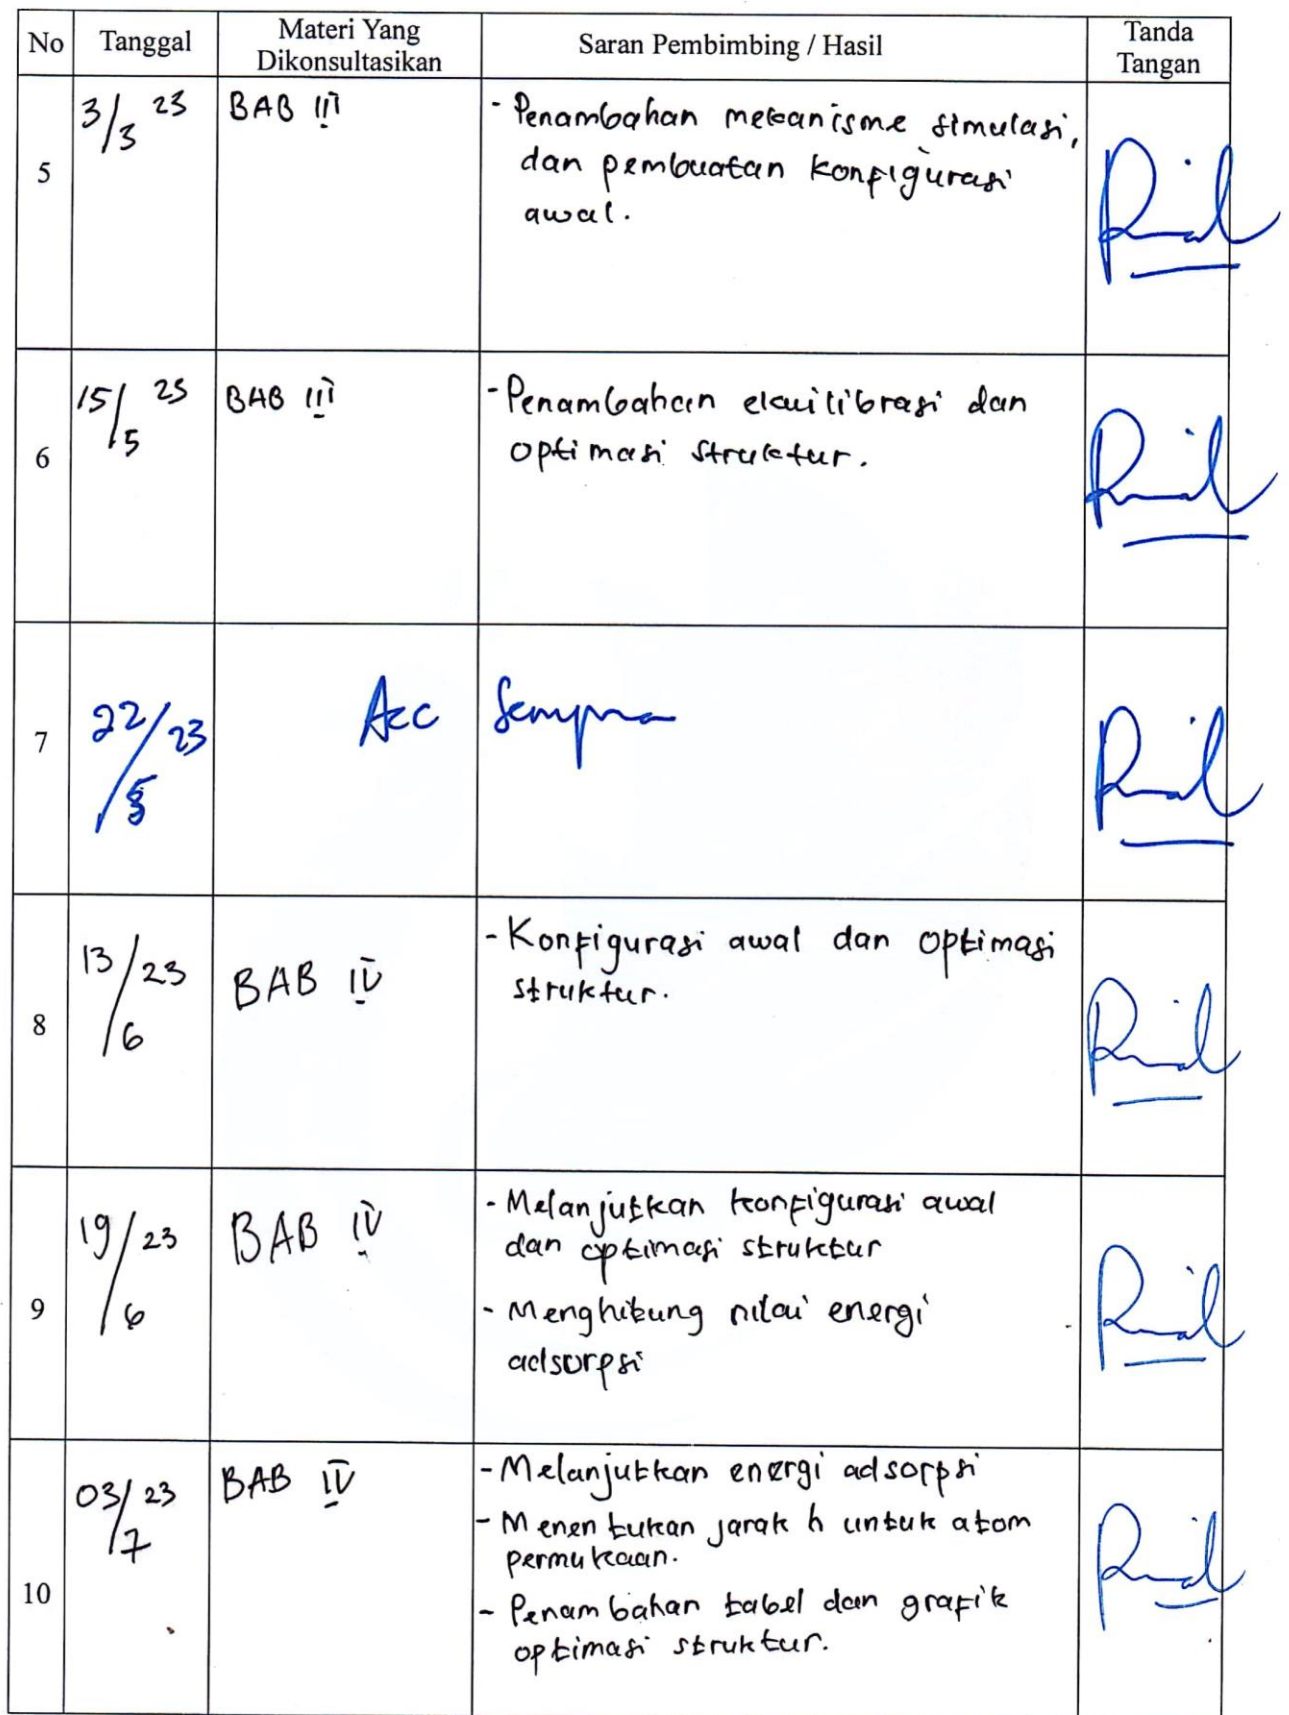 No Tanggal Materi Yang Dikonsultasikan Saran Pembimbing / Hasil Tanda Tangan
5 3/3 23 BAB III - Penambahan mekanisme simulasi,
dan pembuatan konfigurasi
awal.
6 15/5 23 BAB III - Penambahan ekuilibrasi dan
optimasi struktur.
7 22/5 23 Acc Sempro
8 13/6 23 BAB IV - Konfigurasi awal dan optimasi
struktur.
9 19/6 23 BAB IV - Melanjutkan konfigurasi awal
dan optimasi struktur
- Menghitung nilai energi
adsorpsi
10 03/7 23 BAB IV - Melanjutkan energi adsorpsi
- Menentukan jarak h untuk atom
permukaan.
- Penambahan tabel dan grafik
optimasi struktur.